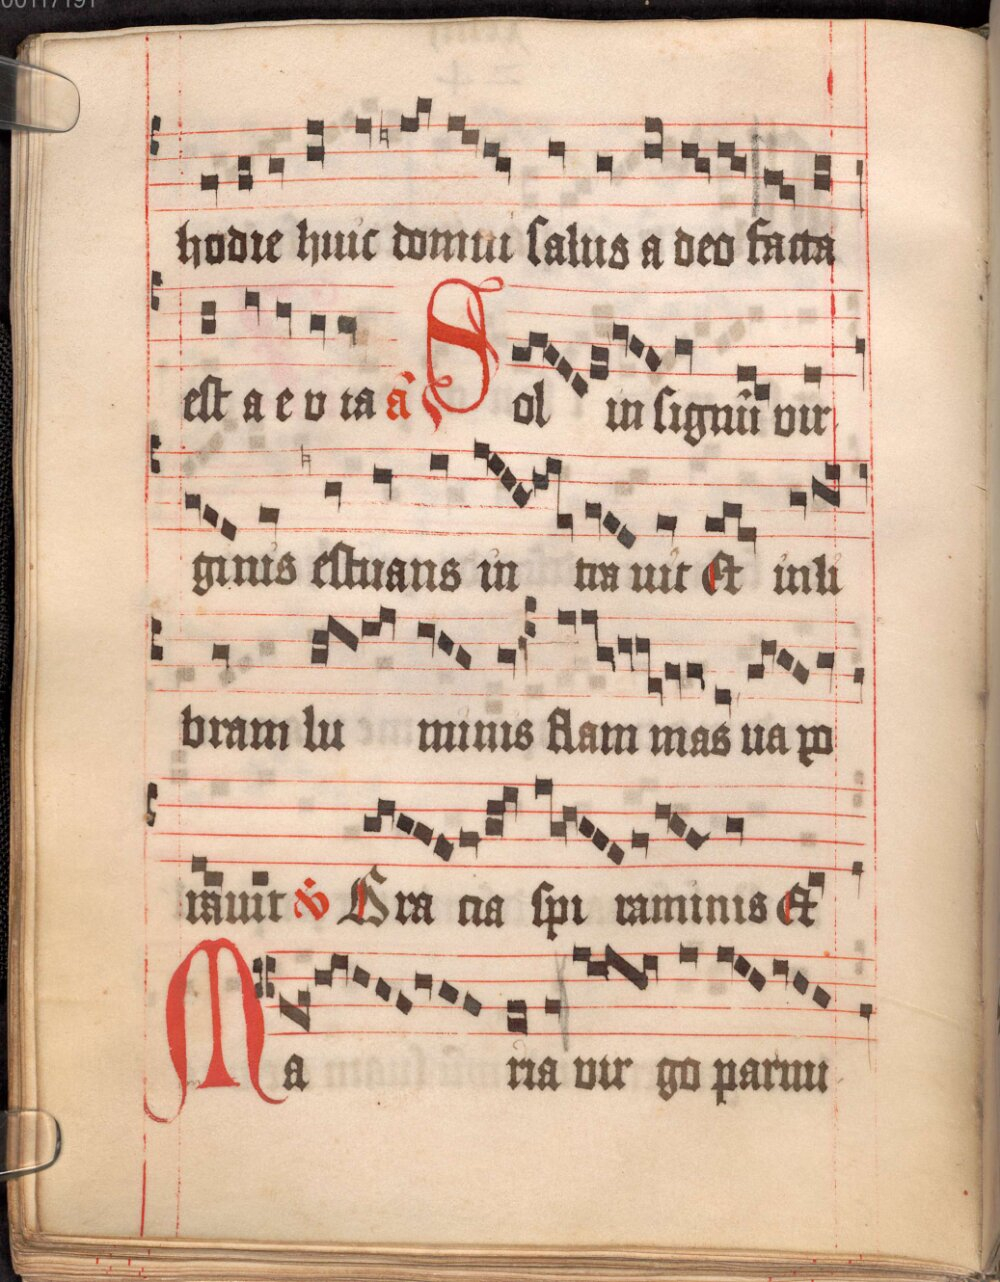 00117191
hodie huic domui salus a deo facta
est a e v ia a Sol in signū vir
ginis estuans in tra uit Et inli
bram lu minis flam mas ua po
rauit v Gra cia spi raminis Et
Ma ria vir go parnu